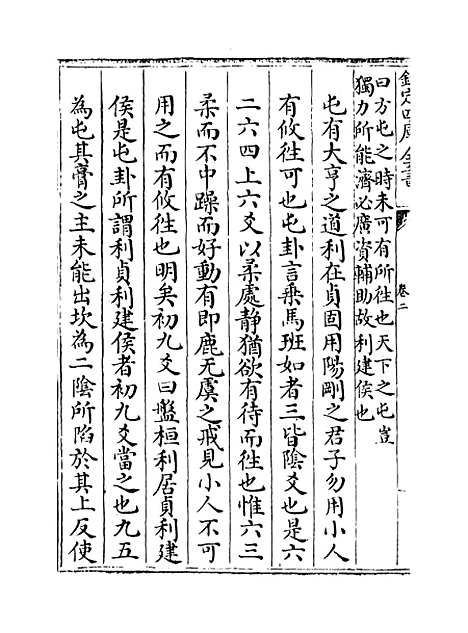 欽定四庫全書
卷二
曰方屯之時未可有所往也天下之屯豈
獨力所能濟必廣資輔助故利建侯也
屯有大亨之道利在貞固用陽剛之君子勿用小人
有攸往可也屯卦言乘馬班如者三皆陰爻也是六
二六四上六爻以柔處静猶欲有待而往也惟六三
柔而不中躁而好動有即鹿无虞之戒見小人不可
用之而有攸往也明矣初九爻曰盤桓利居貞利建
侯是屯卦所謂利貞利建侯者初九爻當之也九五
為屯其膏之主未能出坎為二陰所陷於其上反使